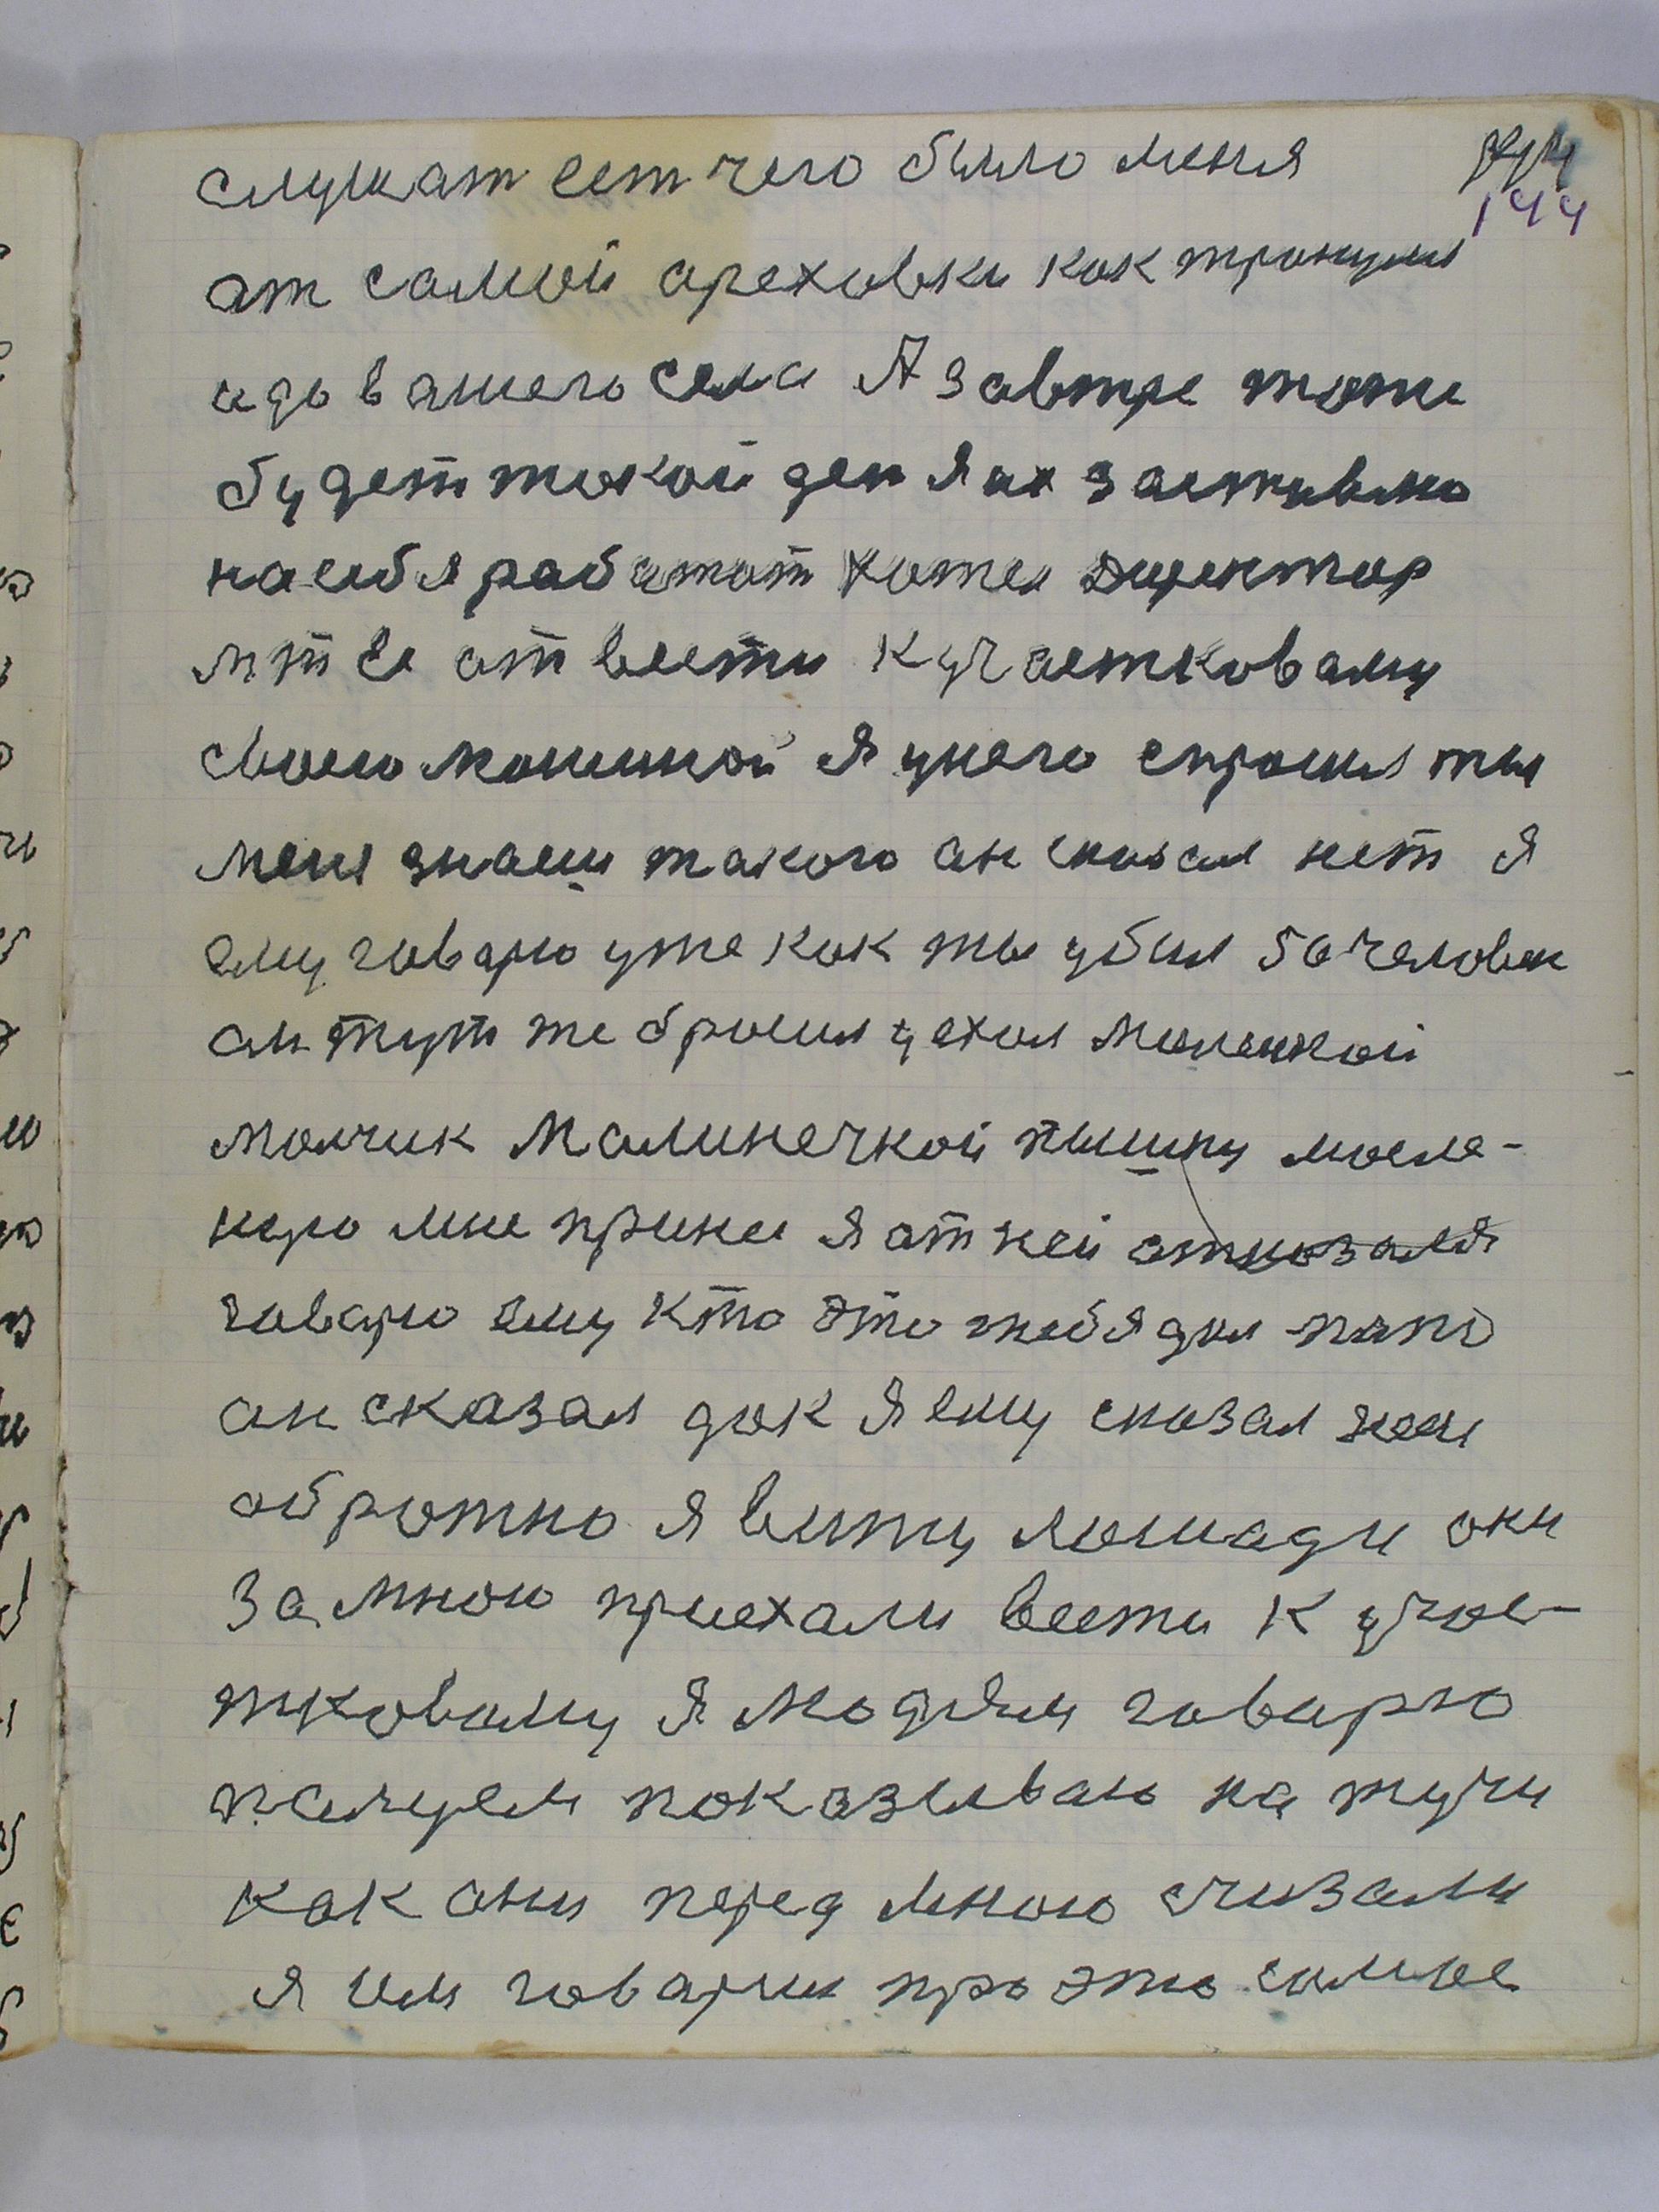 слушат ест чего было меня
144
от самой ареховки как тронулис
и до вашего села А завтре тоже
будет такой ден Я их заставлю
на себя работат хотел директор
мтс отвести к участковаму
своею машиной Я у него спросил ты
меня знаеш такого он сказал нет Я
ему говарю уже как ты убил 50 человек
он тут же бросил уехал маленкой
малчик малинечкой пышку масле-
ную мне принес Я от ней отказался
говарю ему кто это тебя дал папо
он сказал док Я ему сказал неси
обротно Я вижу лошади они
За мною приехали вести к учас-
тковаму Я модям говарю
палцем показываю на тучи
как они перед мною счизали
я им говарил про это самое